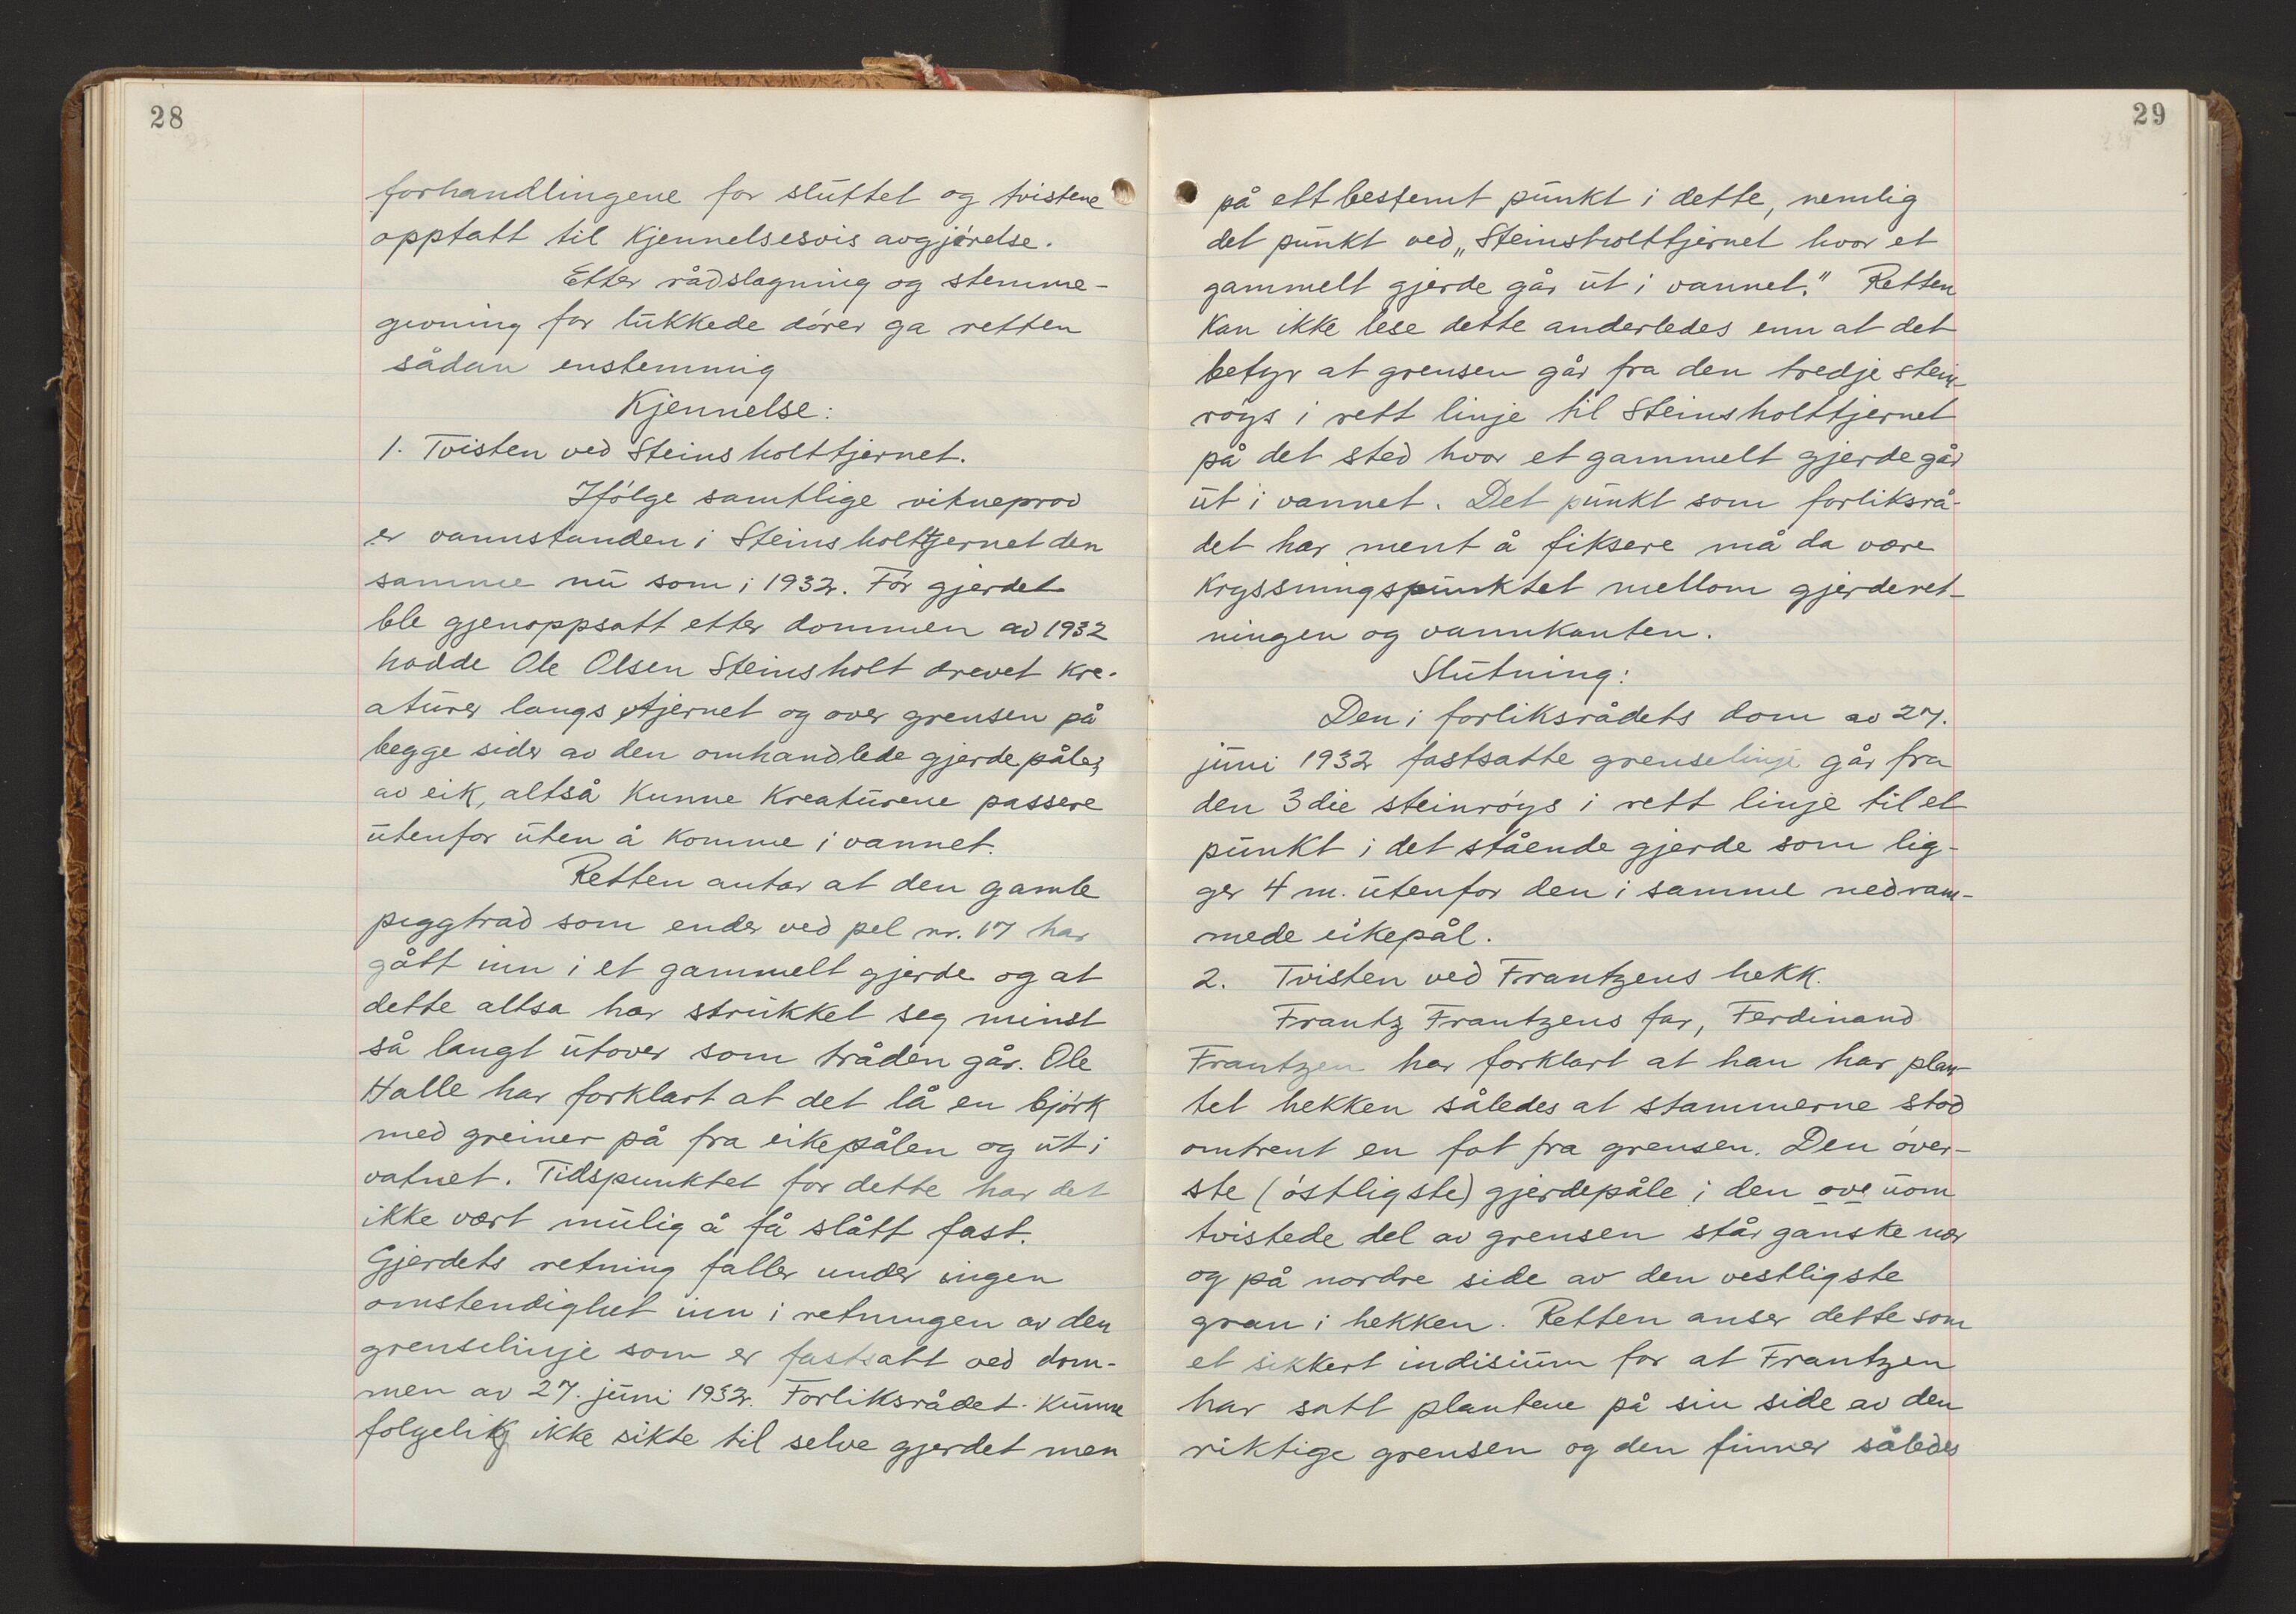 28
forhandlingene for sluttet og tvistene
opptatt til Kjennelsesvis avgjørelse.
Etter rådslagning og stemme-
givning for lukkede dører ga retten
sådan enstemmig
Kjennelse:
1. Tvisten ved Steinsholttjernet.
Ifølge samtlige vitneprov
er vannstanden i Steinsholttjernet den
samme nu som i 1932. Før gjerdet
ble gjenoppsatt etter dommen av 1932
hadde Ole Olsen Steinsholt drevet kre-
aturer langs tjernet og over grensen på
begge sider av den omhandlede gjerdepåle,
av eik, altså Kunne Kreaturene passere
utenfor uten å komme i vannet.
Retten antar at den gamle
piggtrad som ender ved pel nr. 17 har
gått inn i et gammelt gjerde og at
dette altsa har strukket seg minst
så langt utover som tråden går. Ole
Halle har forklart at det lå en bjørk
med greiner på fra eikepålen og ut i
vatnet. Tidspunktet for dette har det
ikke vært mulig å få slått fast.
Gjerdets retning faller under ingen
omstendighet inn i retningen av den
grenselinje som er fastsatt ved dom-
men av 27. juni 1932. Forliksrådet kunne
følgelig ikke sikte til selve gjerdet men
29
på ett bestemt punkt i dette, nemlig
det punkt ved „Steinsholttjernet hvor et
gammelt gjerde går ut i vannet." Retten
Kan ikke lese dette anderledes enn at det
betyr at grensen går fra den tredje stein
røys i rett linje til Steinsholttjernet
på det sted hvor et gammelt gjerde går
ut i vannet. Det punkt som forliksrå-
det har ment å fiksere må da være
Kryssningspunktet mellom gjerderet-
ningen og vannkanten.
Slutning:
Den i forliksrådets dom av 27.
juni 1932 fastsatte grenselinje går fra
den 3die steinrøys i rett linje til et
punkt i det stående gjerde som lig-
ger 4 m. utenfor den i samme nedram-
mede eikepål.
2. Tvisten ved Frantzens hekk.
Frantz Frantzens far, Ferdinand
Frantzen har forklart at han har plan-
tet hekken således at stammerne stod
omtrent en fot fra grensen. Den øver-
ste (østligste) gjerdepåle i den ove uom
tvistede del av grensen står ganske nær
og på nordre side av den vestligste
gran i hekken. Retten anser dette som
et sikkert indisium for at Frantzen
har satt plantene på sin side av den
riktige grensen og den finner således